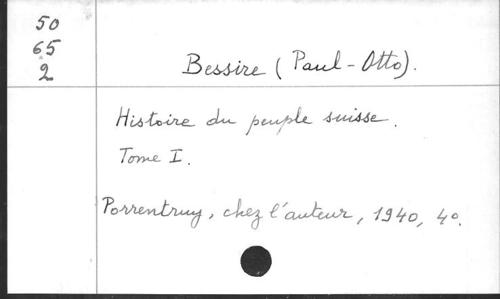 50
65
2
Bessire (Paul-Otto).
Histoire du peuple suisse.
Tome I.
Porrentruy, chez l'auteur, 1940, 4°.